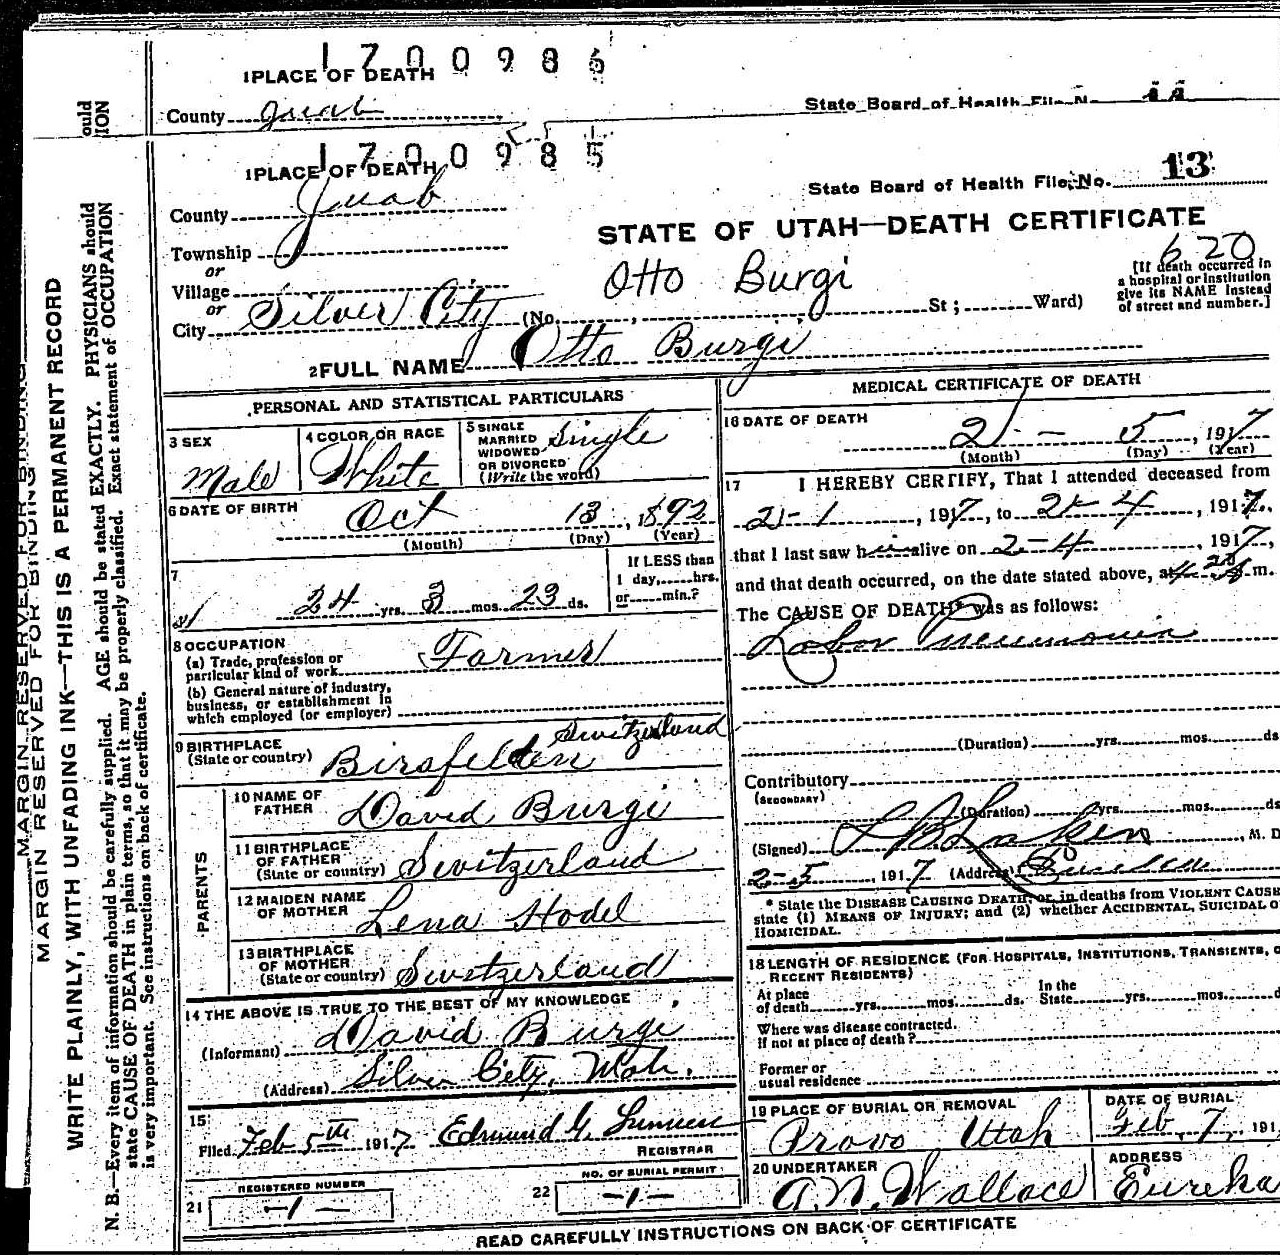 1700986
1 PLACE OF DEATH
County Juab
State Board of Health File N
ould
ION
1700985
1 PLACE OF DEATH
State Board of Health File No. 13
County Juab
STATE OF UTAH—DEATH CERTIFICATE
620
Township
or
Village
or
City Silver City (No. , St ; Ward)
Otto Burgi
[If death occurred in
a hospital or institution
give its NAME instead
of street and number.]
2 FULL NAME Otto Burgi
PERSONAL AND STATISTICAL PARTICULARS
3 SEX
Male
4 COLOR OR RACE
White
5 SINGLE
MARRIED
WIDOWED
OR DIVORCED
(Write the word)
Single
6 DATE OF BIRTH
Oct 13, 1892
(Month) (Day) (Year)
7
24 yrs. 3 mos. 23 ds.
If LESS than
1 day, hrs.
or min.?
8 OCCUPATION
(a) Trade, profession or
particular kind of work Farmer
(b) General nature of industry,
business, or establishment in
which employed (or employer)
9 BIRTHPLACE
(State or country) Birsfelden Switzerland
PARENTS
10 NAME OF
FATHER David Burgi
11 BIRTHPLACE
OF FATHER
(State or country) Switzerland
12 MAIDEN NAME
OF MOTHER Lena Hodel
13 BIRTHPLACE
OF MOTHER
(State or country) Switzerland
14 THE ABOVE IS TRUE TO THE BEST OF MY KNOWLEDGE
(Informant) David Burgi
(Address) Silver City, Utah.
15
Filed Feb 5th 1917 Edmund G.
REGISTRAR
21 REGISTERED NUMBER
-1-
22 NO. OF BURIAL PERMIT
-1-
MEDICAL CERTIFICATE OF DEATH
16 DATE OF DEATH
2 - 5, 1917
(Month) (Day) (Year)
17 I HEREBY CERTIFY, That I attended deceased from
2-1, 1917, to 2-4, 1917,
that I last saw him alive on 2-4, 1917,
and that death occurred, on the date stated above, at m.
The CAUSE OF DEATH* was as follows:
Lobar Pneumonia
(Duration) yrs. mos. ds
Contributory
(SECONDARY)
(Duration) yrs. mos. ds
(Signed) , M. D
2-5, 1917 (Address) Eureka
* State the DISEASE CAUSING DEATH; or, in deaths from VIOLENT CAUSE
state (1) MEANS OF INJURY; and (2) whether ACCIDENTAL, SUICIDAL O
HOMICIDAL.
18 LENGTH OF RESIDENCE (FOR HOSPITALS, INSTITUTIONS, TRANSIENTS, O
RECENT RESIDENTS)
At place
of death yrs. mos. ds.
In the
State yrs. mos. d
Where was disease contracted.
if not at place of death?
Former or
usual residence
19 PLACE OF BURIAL OR REMOVAL
Provo Utah
DATE OF BURIAL
Feb. 7, 191
20 UNDERTAKER
A.N. Wallace
ADDRESS
Eureka
READ CAREFULLY INSTRUCTIONS ON BACK OF CERTIFICATE
MARGIN RESERVED FOR BINDING
MARGIN RESERVED FOR BINDING
WRITE PLAINLY, WITH UNFADING INK—THIS IS A PERMANENT RECORD
N. B.—Every item of information should be carefully supplied. AGE should be stated EXACTLY. PHYSICIANS should
state CAUSE OF DEATH in plain terms, so that it may be properly classified. Exact statement of OCCUPATION
is very important. See instructions on back of certificate.